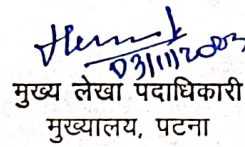 03/11/2023
मुख्य लेखा पदाधिकारी
मुख्यालय, पटना